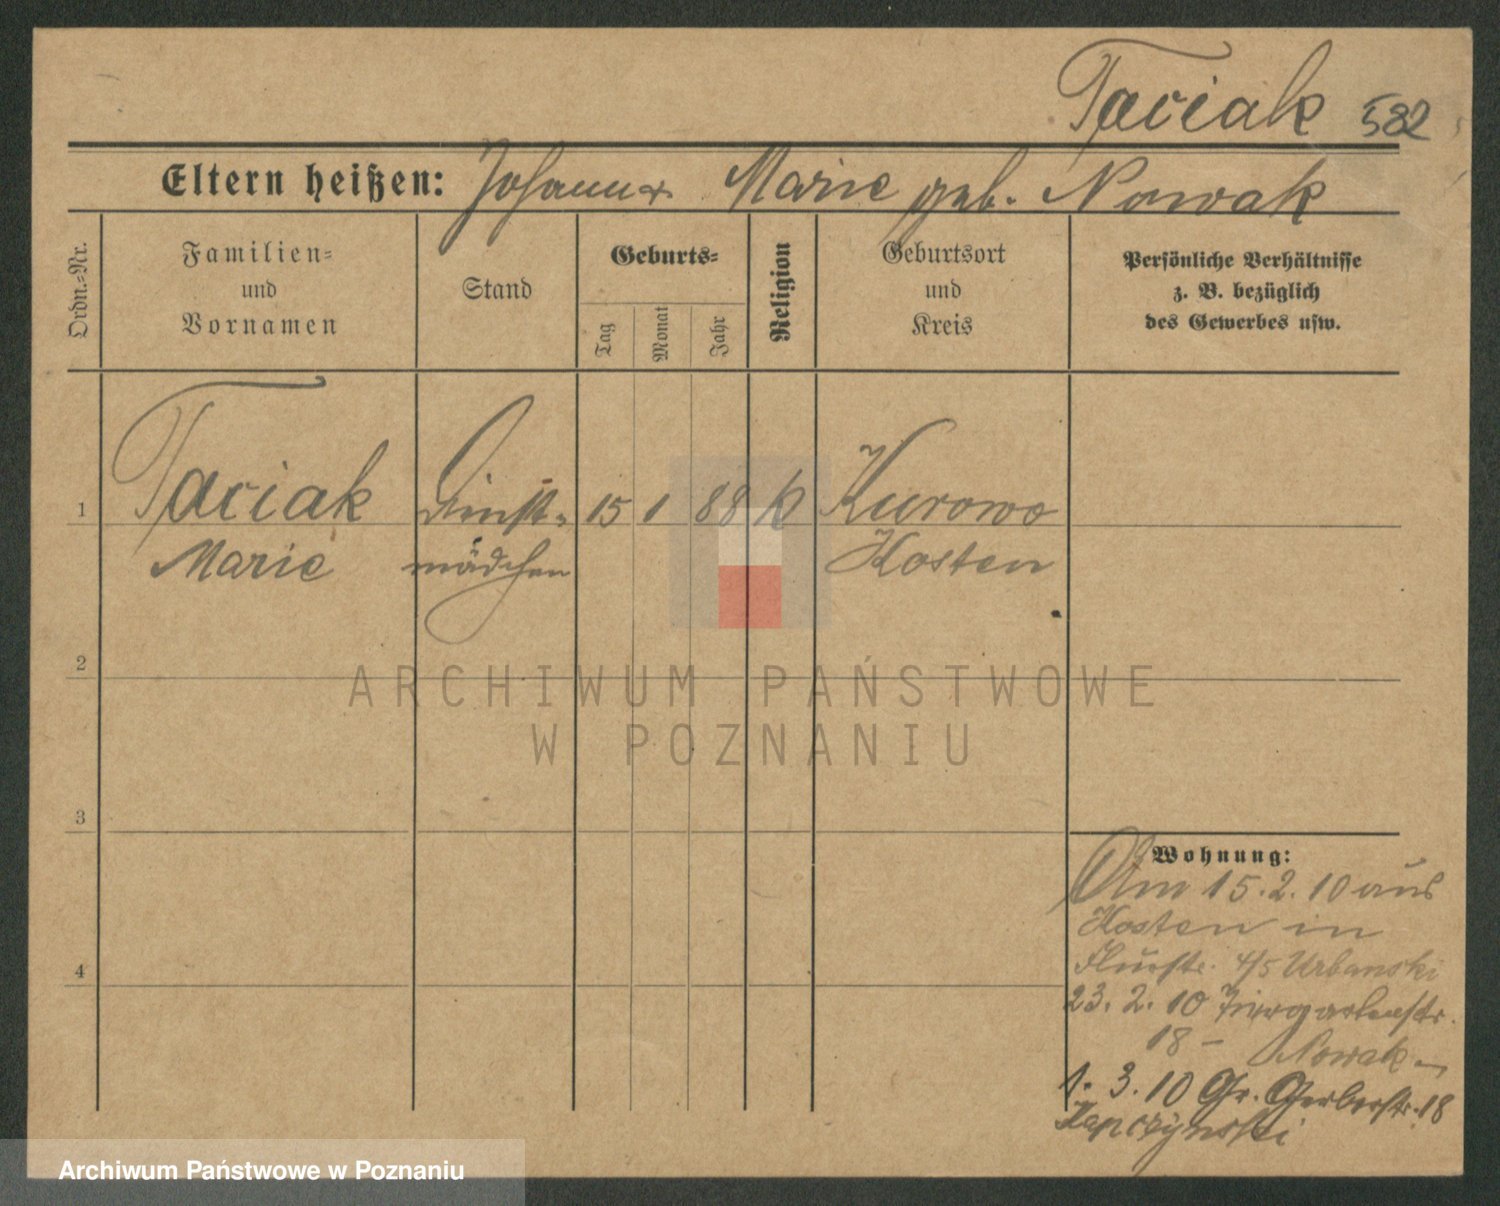 Taciak 582
Eltern heißen: Johann u. Marie geb. Nowak
Ordn.-Nr.
Familien-
und
Vornamen
Stand
Geburts-
Tag
Monat
Jahr
Religion
Geburtsort
und
Kreis
Persönliche Verhältnisse
z. B. bezüglich
des Gewerbes usw.
1 Taciak Dienst- 15 1 88 k Kurowo
Marie mädchen Kosten
2
ARCHIWUM PAŃSTWOWE
W POZNANIU
3
Wohnung:
Am 15. 2. 10 aus
Kosten in
4/5 Urbanski
4
23. 2. 10 Tiergartenstr.
18 – Nowak –
1. 3. 10 Gr. Gerberstr. 18
Kapczynski
Archiwum Państwowe w Poznaniu